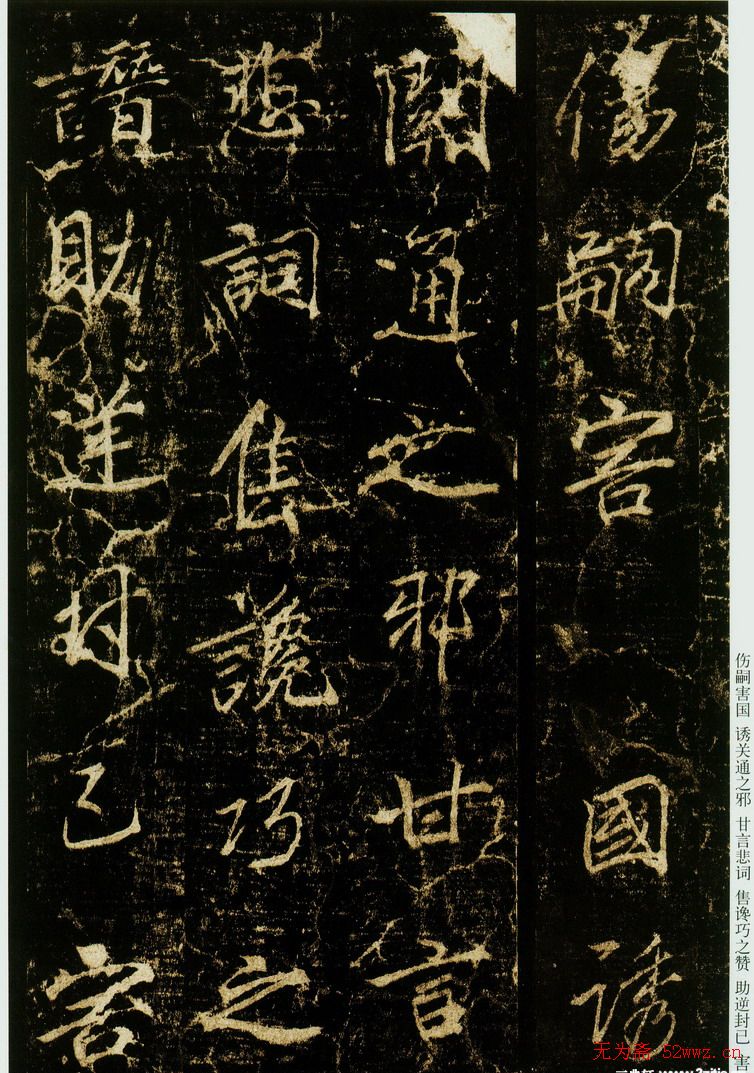 傷嗣害國誘
關通之邪甘言
悲詞售讒巧之
譖助逆封己害
伤嗣害国 诱关通之邪 甘言悲词 售谗巧之赞 助逆封已 害
无为斋-52wwz.cn